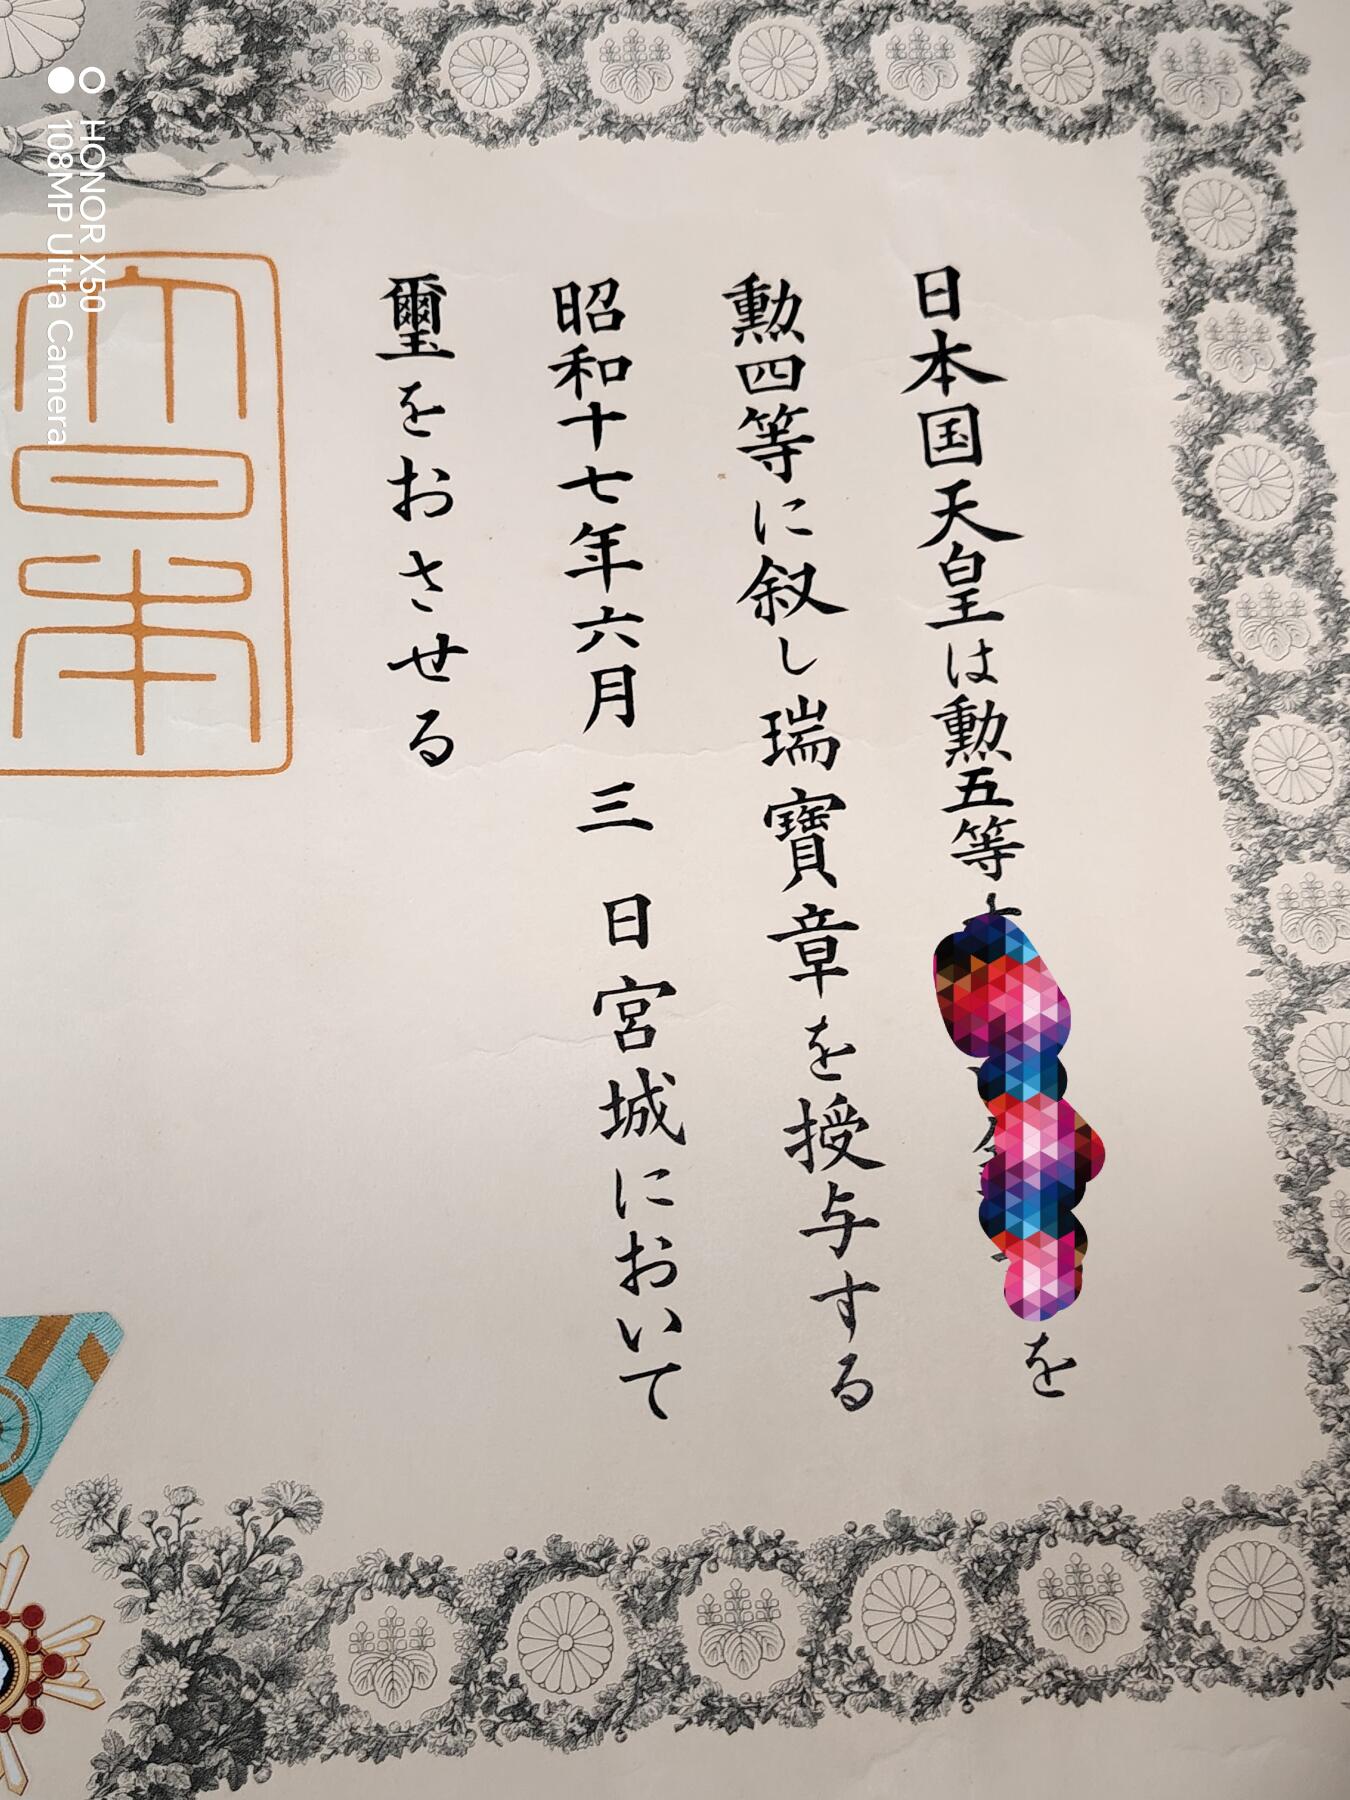 日本国天皇は勲五等
を
勲四等に叙し瑞寶章を授与する
昭和十七年六月三日宮城において
璽をおさせる
大日本
HONOR X50
108MP Ultra Camera